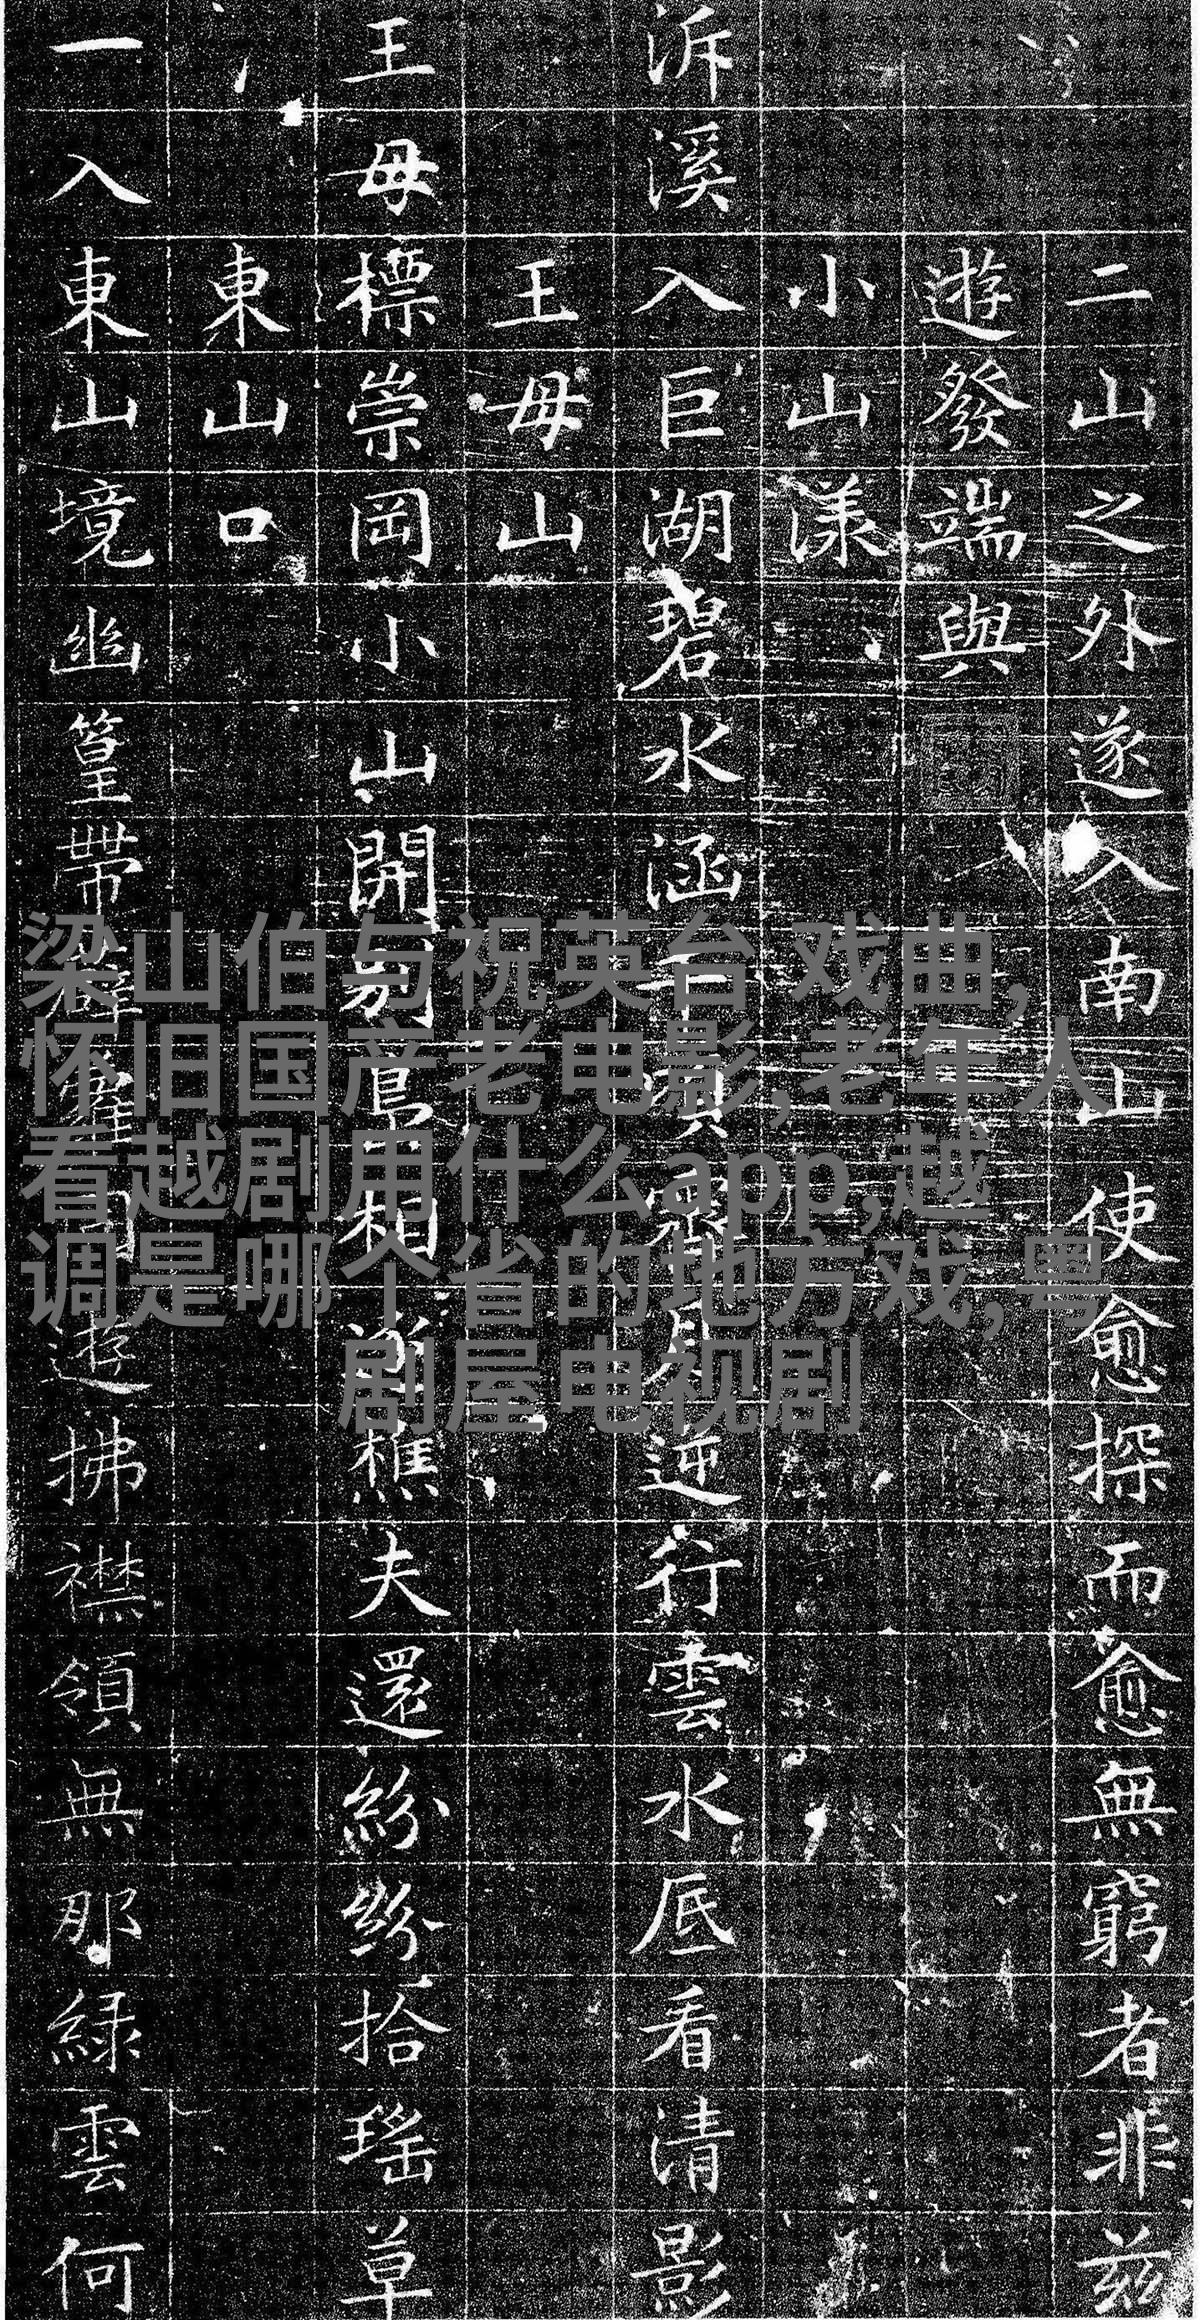 二山之外遂入南山使愈探而愈無窮者非兹
遊發端與
小山漾
泝溪入巨湖碧水涵千頃月逆行雲水底看清影
王母山
王母標崇岡小山開別島相樵夫還紛紛拾瑤草
東山口
一入東山境幽篁帶遊拂襟領無那綠雲何
梁山伯与祝英台 戏曲,
怀旧国产老电影,老年人
看越剧用什么app,越
调是哪个省的地方戏,粤
剧屋电视剧